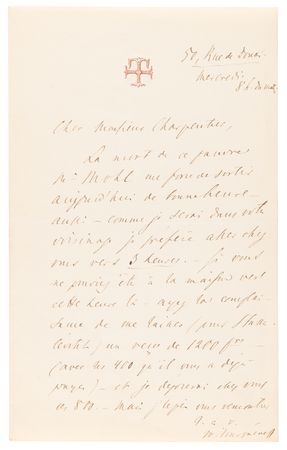 50, Rue de Douai
Mercredi
8 h. du matin
Cher Monsieur Charpentier,
La mort de ce pauvre
Mr Mohl me force de sortir
aujourd'hui de bonne heure –
aussi – comme je serai dans votre
voisinage je préfère aller chez
vous vers 3 heures. – Si vous
ne pouviez être à la maison vers
cette heure là – ayez la complai-
sance de me laisser (pour
) un reçu de 1200 frs –
(avec les 400 qu'il vous a déjà
payés) – et je déposerai chez vous
les 800. – Mais j'espère vous rencontrer
Iv. Tourguéneff